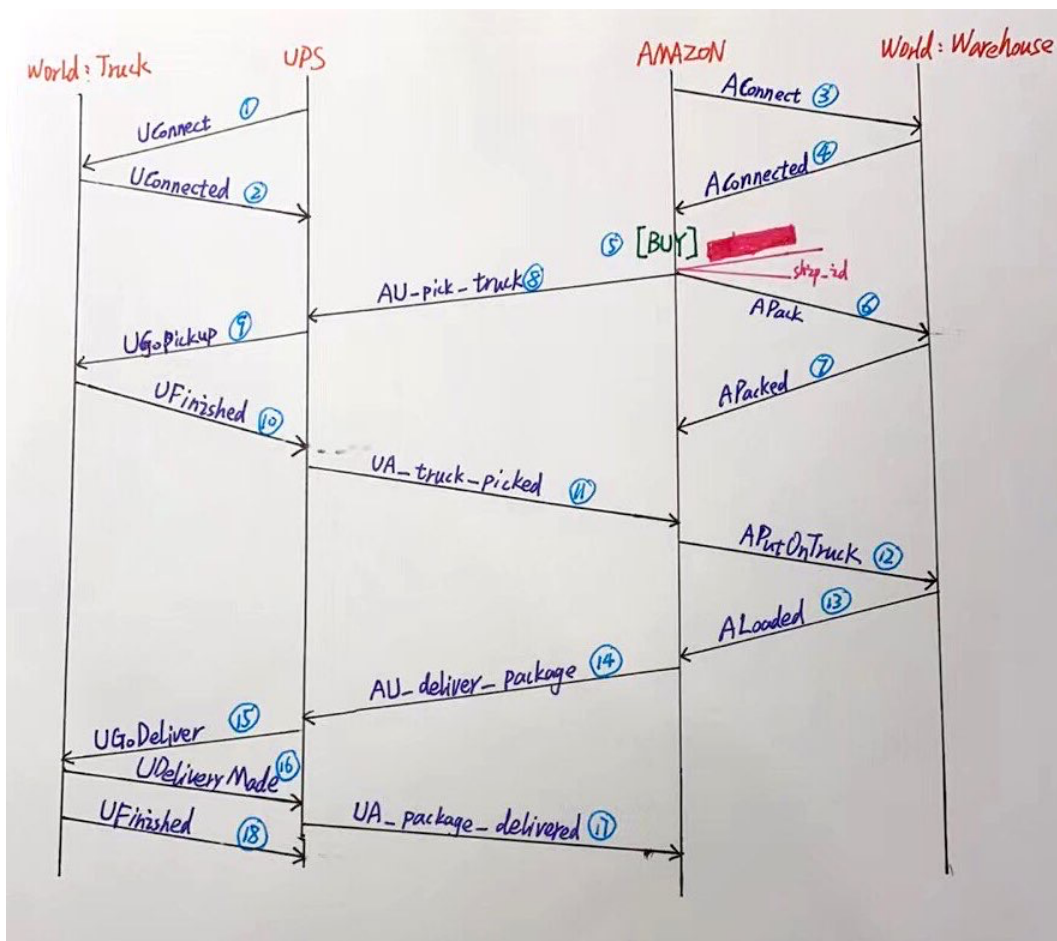 World: Truck
UPS
AMAZON
World: Warehouse
UConnect ①
AConnect ③
UConnected ②
AConnected ④
⑤ [BUY]
ship_id
AU-pick_truck ⑧
APack ⑥
UGoPickup ⑨
APacked ⑦
UFinished ⑩
UA_truck_picked ⑪
APutOnTruck ⑫
ALoaded ⑬
AU_deliver_package ⑭
UGoDeliver ⑮
UDeliveryMade ⑯
UFinished ⑱
UA_package_delivered ⑰